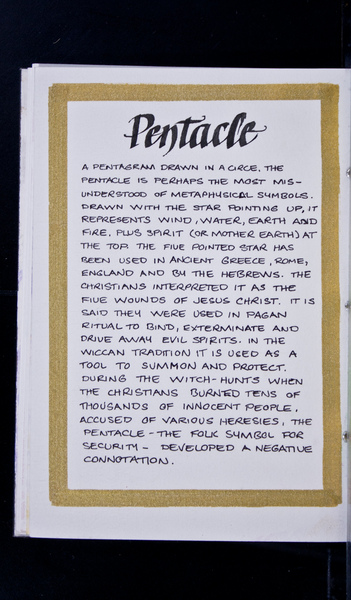 Pentacle
A PENTAGRAM DRAWN IN A CIRCE, THE
PENTACLE IS PERHAPS THE MOST MIS-
UNDERSTOOD OF METAPHYSICAL SYMBOLS.
DRAWN WITH THE STAR POINTING UP, IT
REPRESENTS WIND, WATER, EARTH AND
FIRE. PLUS SPIRIT (OR MOTHER EARTH) AT
THE TOP. THE FIVE POINTED STAR HAS
BEEN USED IN ANCIENT GREECE, ROME,
ENGLAND AND BY THE HEBREWS. THE
CHRISTIANS INTERPRETED IT AS THE
FIVE WOUNDS OF JESUS CHRIST. IT IS
SAID THEY WERE USED IN PAGAN
RITUAL TO BIND, EXTERMINATE AND
DRIVE AWAY EVIL SPIRITS. IN THE
WICCAN TRADITION IT IS USED AS A
TOOL TO SUMMON AND PROTECT.
DURING THE WITCH-HUNTS WHEN
THE CHRISTIANS BURNED TENS OF
THOUSANDS OF INNOCENT PEOPLE,
ACCUSED OF VARIOUS HERESIES, THE
PENTACLE - THE FOLK SYMBOL FOR
SECURITY - DEVELOPED A NEGATIVE
CONNOTATION.